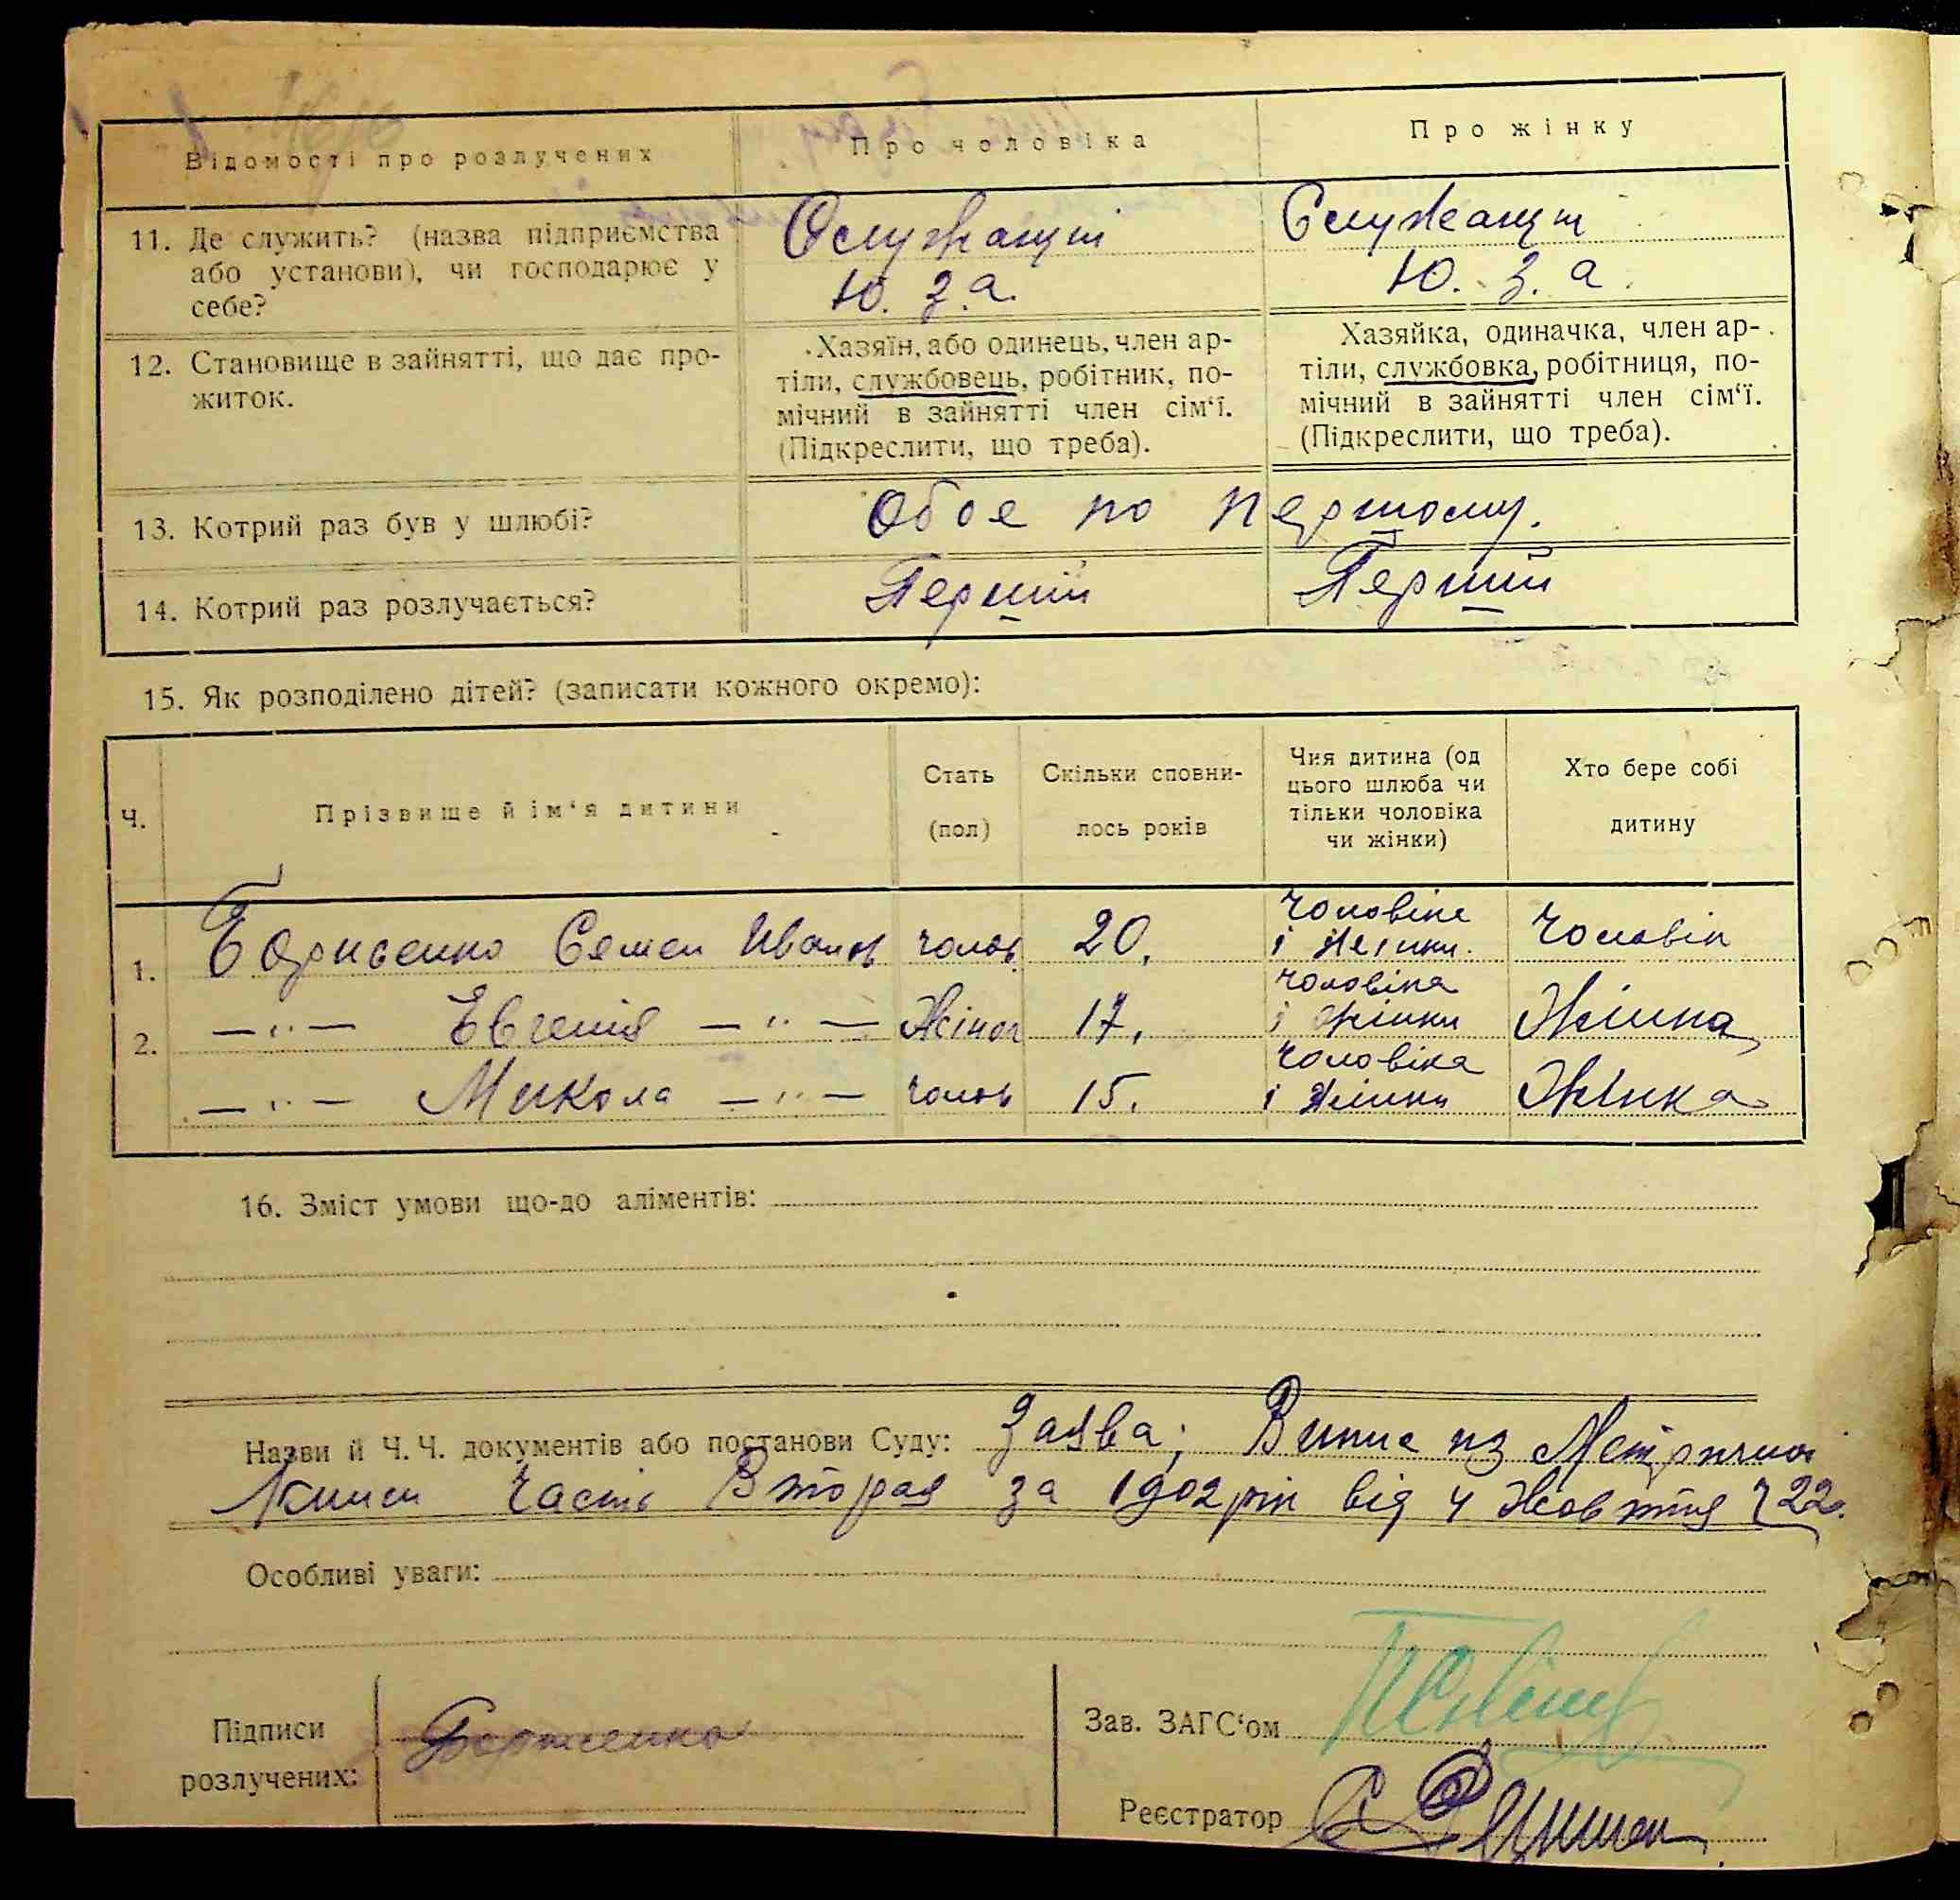 Відомості про розлучених
Про чоловіка
Про жінку
11. Де служить? (назва підприємства
або установи), чи господарює у
себе?
Служащий
Ю. З. а.
Служащий
Ю. З. а.
12. Становище в зайнятті, що дає про-
житок.
Хазяїн, або одинець, член ар-
тіли, службовець, робітник, по-
мічний в зайнятті член сім‘ї.
(Підкреслити, що треба).
Хазяйка, одиначка, член ар-
тіли, службовка, робітниця, по-
мічний в зайнятті член сім‘ї.
(Підкреслити, що треба).
13. Котрий раз був у шлюбі?
Обоє по першому.
14. Котрий раз розлучається?
Перший
Перший
15. Як розподілено дітей? (записати кожного окремо):
Ч.
Прізвище й ім‘я дитини
Стать
(пол)
Скільки сповни-
лось років
Чия дитина (од
цього шлюба чи
тільки чоловіка
чи жінки)
Хто бере собі
дитину
1. Борисенко Семен Иванов чолов. 20. Чоловіка і Жінки. Чоловік
2. —"— Евгенія —"— Жіноч 17. Чоловіка і Жінки Жінка
—"— Микола —"— чолов 15. Чоловіка і Жінки Жінка
16. Зміст умови що-до аліментів:
Назви й Ч. Ч. документів або постанови Суду: Заява; Випис из Метричної
Книги Часть Вторая за 1902 рік від 4 Жовтня Ч 22.
Особливі уваги:
Підписи
розлучених:
Борисенко
Зав. ЗАГС‘ом
Реєстратор